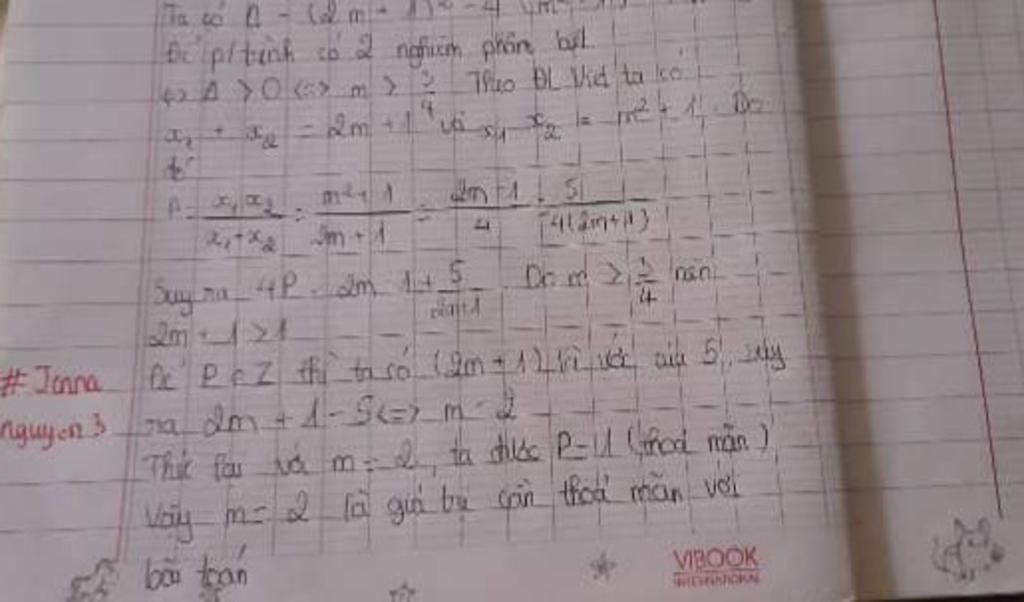 Ta có Δ = (2m + 1)² - 4 (m² + 1)
Để p/trình có 2 nghiệm phân biệt
<=> Δ > 0 <=> m > 3/4 Theo ĐL Viet ta có
x₁ + x₂ = 2m + 1 và x₁ x₂ = m² + 1. Do
đó
P = x₁x₂/x₁+x₂ = m²+1/2m+1 = 2m-1/4 + 5/4(2m+1)
Suy ra 4P = 2m - 1 + 5/2m+1 Do m > 3/4 nên
2m + 1 > 1
Để P ∈ Z thì ta có (2m + 1) là ước của 5, suy
# Jenna
ra 2m + 1 = 5 <=> m = 2
nguyen3
với m = 2, ta được P = 1 (thoả mãn)
Vậy m = 2 là giá trị cần thoả mãn với
bài toán
VIBOOK
INTERNATIONAL